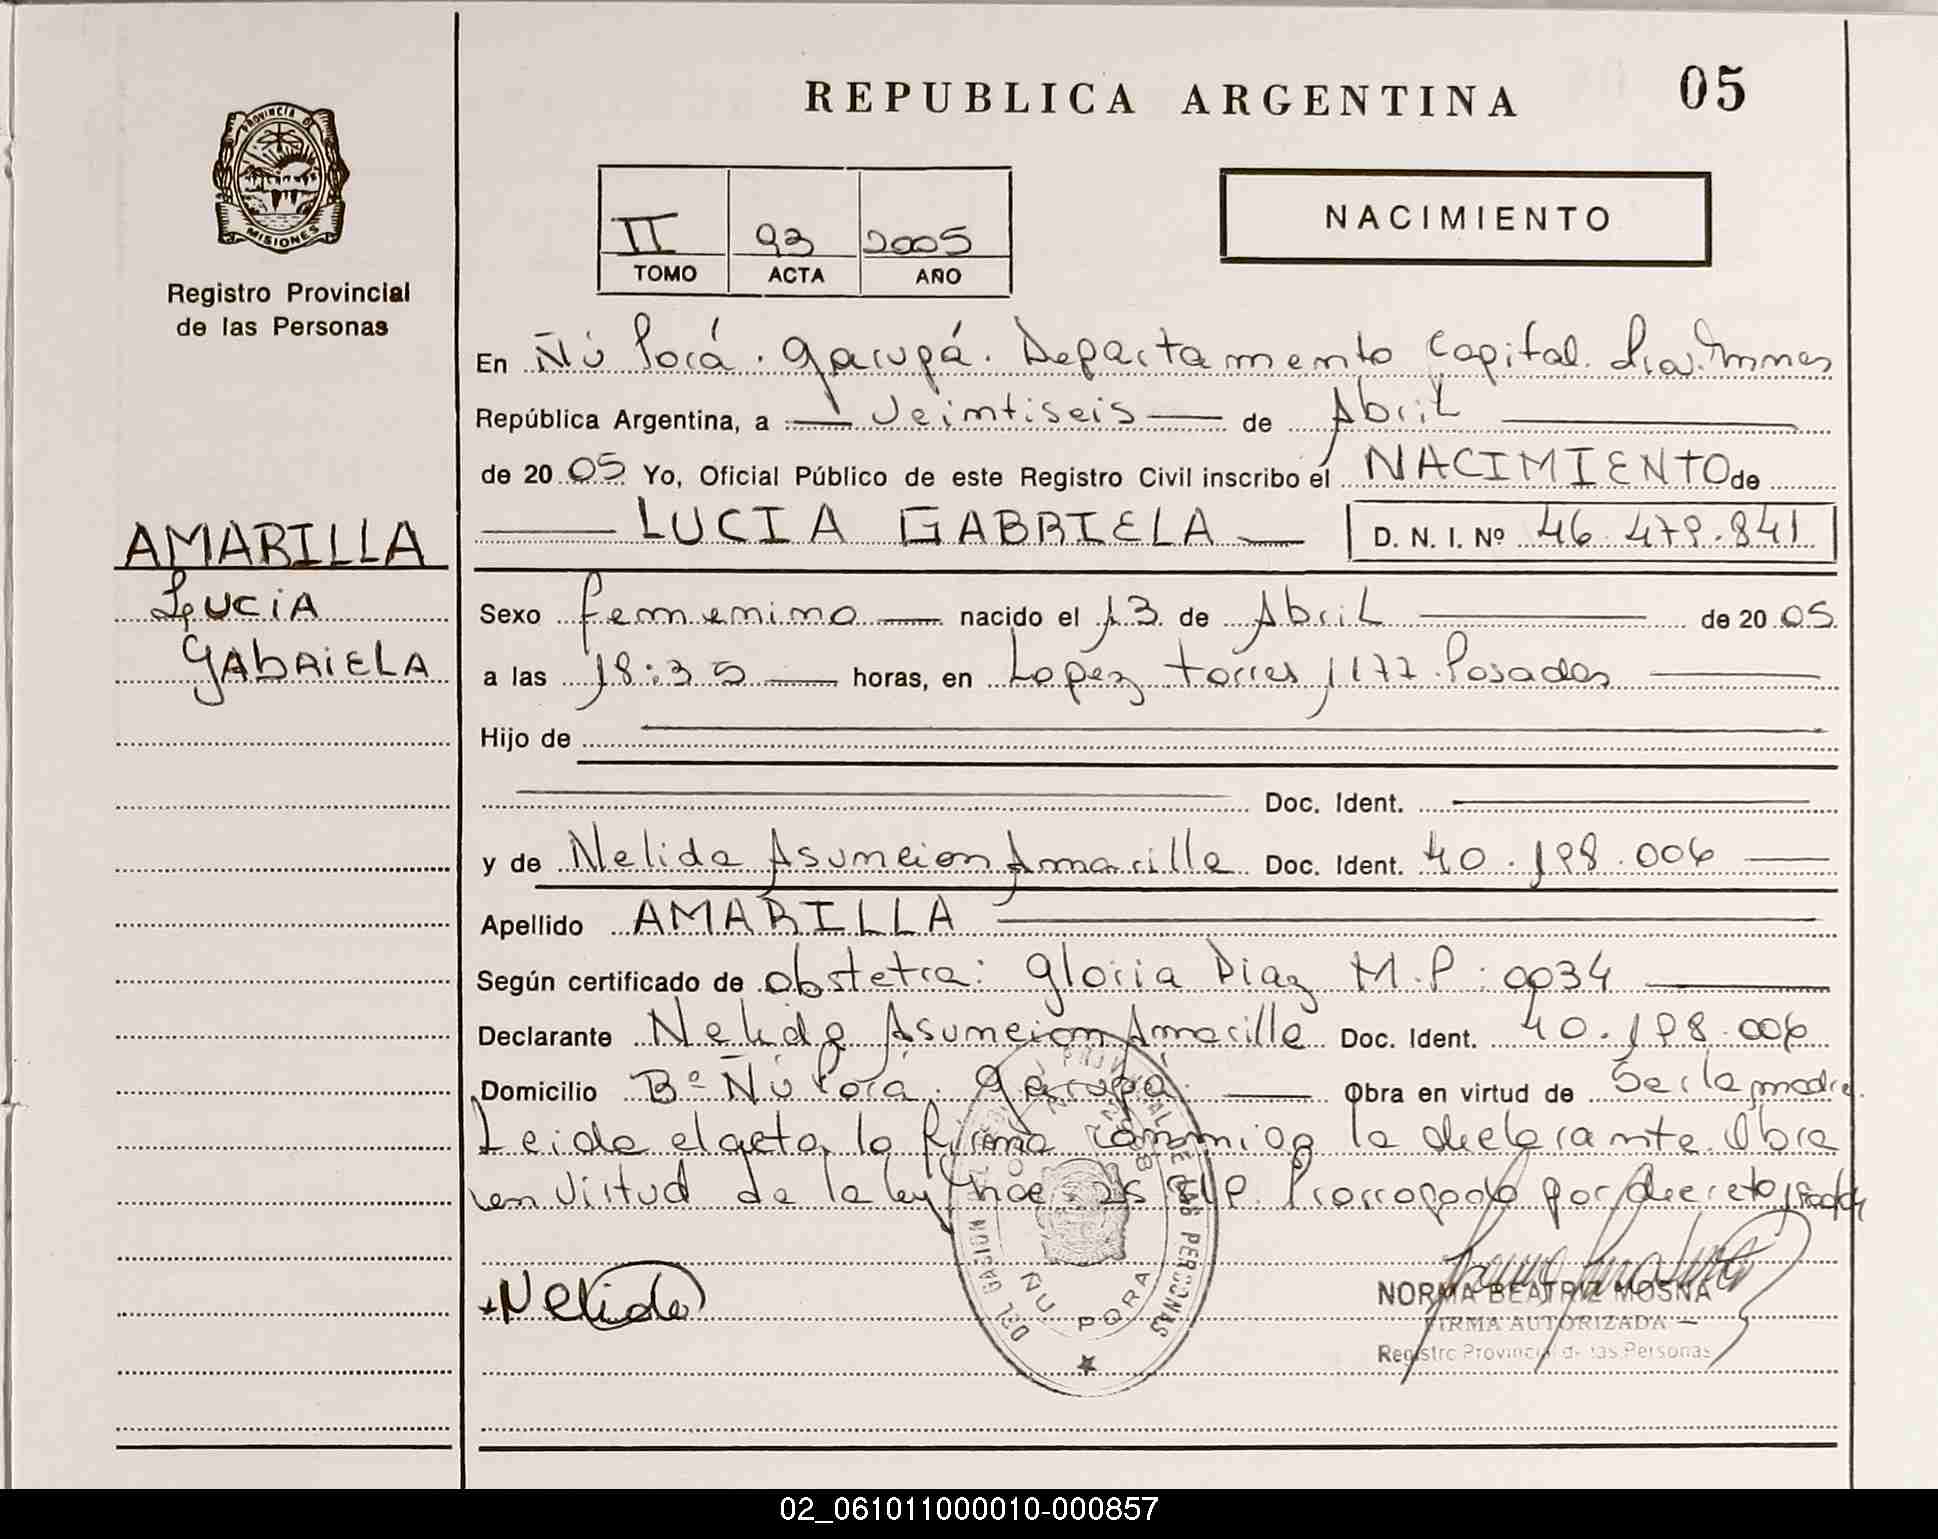 REPUBLICA ARGENTINA
05
PROVINCIA DE
MISIONES
Registro Provincial
de las Personas
II 93 2005
TOMO ACTA AÑO
NACIMIENTO
En Ñú Porá. Garupá. Departamento Capital. Pcia. Mnes
República Argentina, a veintiseis de Abril
de 2005 Yo, Oficial Público de este Registro Civil inscribo el NACIMIENTO de
LUCIA GABRIELA D. N. I. Nº 46.479.841
AMARILLA
Lucia
Gabriela
Sexo femenino nacido el 13 de Abril de 2005
a las 18:35 horas, en Lopez Torres 1177. Posadas
Hijo de
Doc. Ident.
y de Nelida Asuncion Amarilla Doc. Ident. 40.198.006
Apellido AMARILLA
Según certificado de obstetra: Gloria Diaz M.P: 0034
Declarante Nelida Asuncion Amarilla Doc. Ident. 40.198.006
Domicilio Bº Ñú Porá. Garupá Obra en virtud de Ser la madre.
Leida el acta, la firma conmigo la declarante. Obra
en virtud de la ley Prorrogada por decreto
Nelida
DE LAS PERSONAS
ÑU PORA
NORMA BEATRIZ MOSNA
FIRMA AUTORIZADA
Registro Provincial de las Personas
02_061011000010-000857